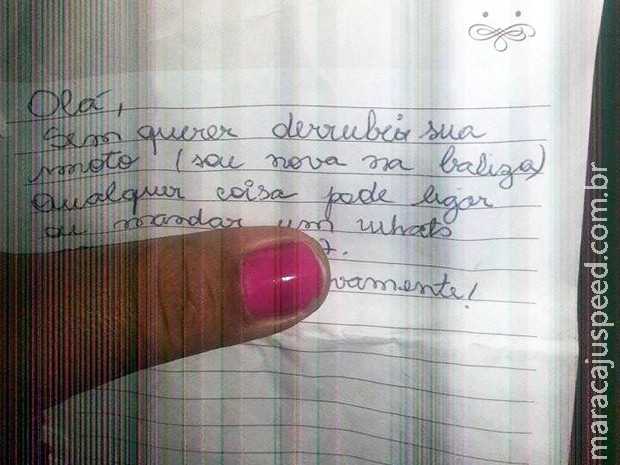 Olá,
Sem querer derrubei sua
moto (sou nova na baliza)
Qualquer coisa pode ligar
ou mandar um whats
7.
vamente!
maracajuspeed.com.br